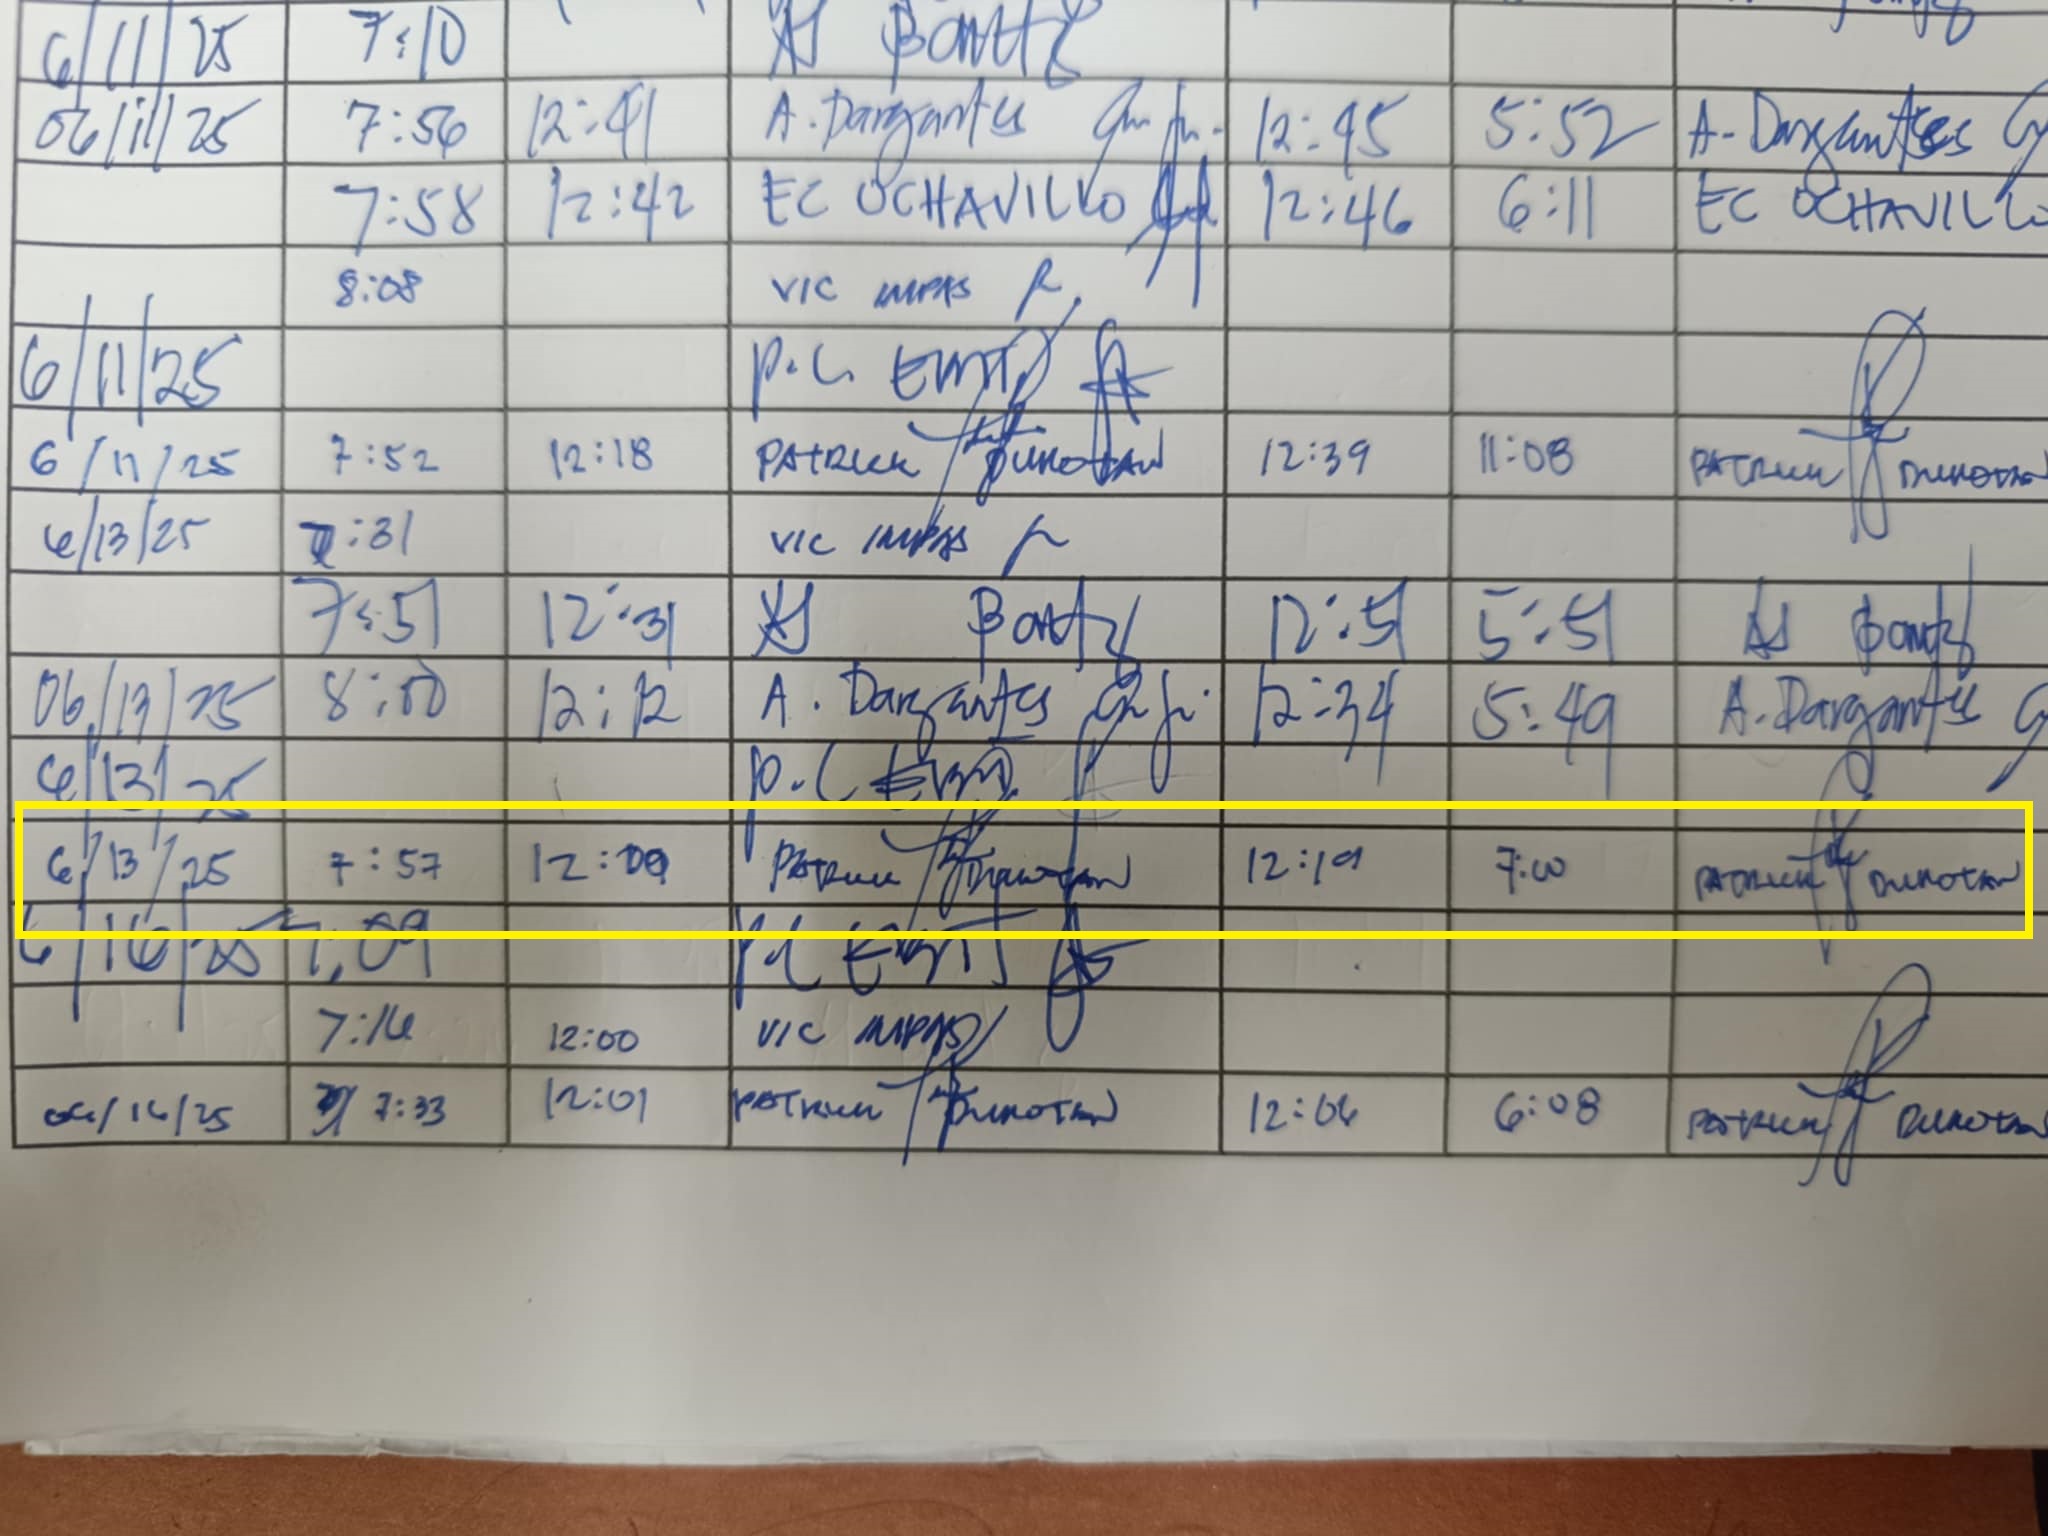 6/11/25 7:10 Bontz
06/11/25 7:56 12:41 A. Dargantes 12:45 5:52 A. Dargantes
7:58 12:42 EC OCHAVILLO 12:46 6:11 EC OCHAVILLO
8:08 VIC IMPAS
6/11/25 P.C.
6/11/25 7:52 12:18 PATRICK DUKOTAN 12:39 11:08 PATRICK DUKOTAN
6/13/25 7:31 VIC IMPAS
7:51 12:31 Bontz 12:51 5:51 Bontz
06/13/25 8:00 12:12 A. Dargantes 12:34 5:49 A. Dargantes
6/13/25 P.C
6/13/25 7:57 12:09 PATRICK DUKOTAN 12:19 7:00 PATRICK DUKOTAN
6/16/25 7:09 P.C
7:16 12:00 VIC IMPAS
06/16/25 7:33 12:01 PATRICK DUKOTAN 12:06 6:08 PATRICK DUKOTAN